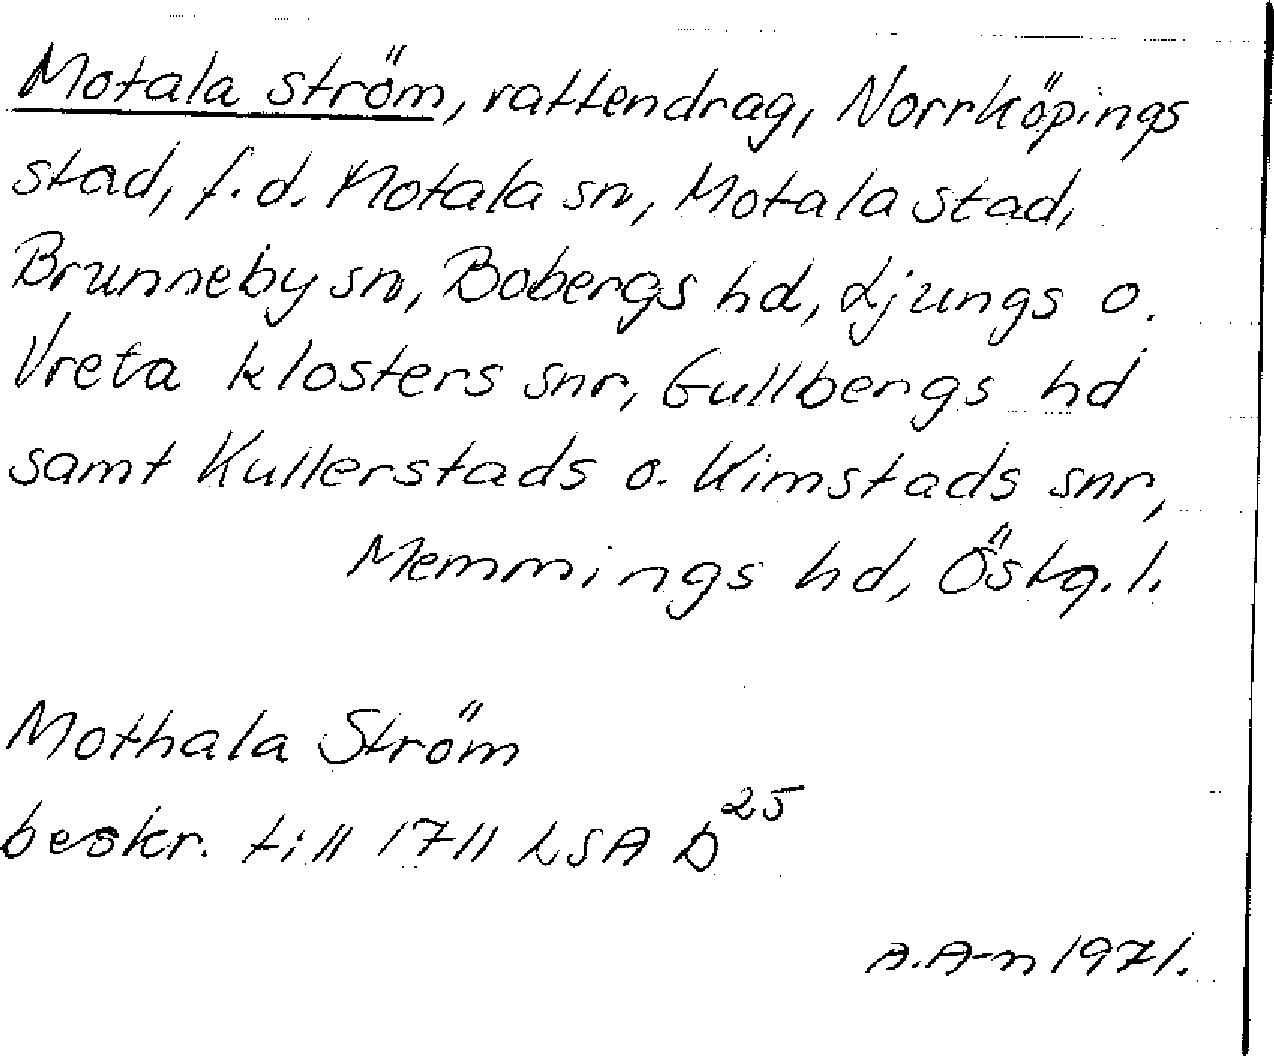 Motala ström, vattendrag, Norrköpings
stad, f.d. Motala sn, Motala stad,
Brunneby sn, Bobergs hd, Ljungs o.
Vreta klosters snr, Gullbergs hd
samt Kullerstads o. Kimstads snr,
Memmings hd, Östg. l.
Mothala Ström
beskr. till 1711 LSA D 25
A.A-n 1971.